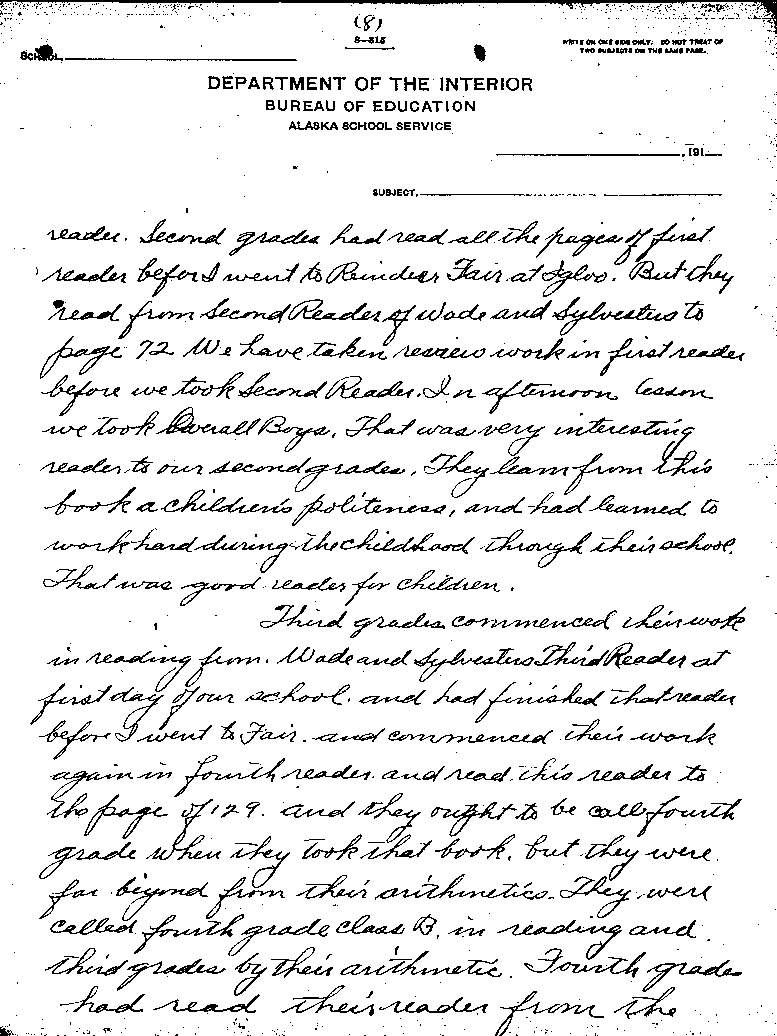 (8)
8-315
SCHOOL,
WRITE ON ONE SIDE ONLY. DO NOT TREAT OF
TWO SUBJECTS ON THE SAME PAGE.
DEPARTMENT OF THE INTERIOR
BUREAU OF EDUCATION
ALASKA SCHOOL SERVICE
, 191
SUBJECT,
reader. Second grades had read all the pages of first
reader befor I went to Reindeer Fair at Igloo. But they
read from Second Reader of Wade and Sylvestus to
page 72 We have taken review work in first reader
before we took Second Reader. In afternoon lesson
we took Overall Boys. That was very interesting
reader to our second grades. They learn from this
book a children's politeness, and had learned to
work hard during the childhood through their school.
That was good reader for children.
Third grades commenced their work
in reading from. Wade and Sylvestus Third Reader at
first day of our school. and had finished that reader
before I went to Fair. and commenced their work
again in fourth reader. and read this reader to
the page of 129. and they ought to be call fourth
grade when they took that book, but they were
far beyond from their arithmetics. They were
called fourth grade class B. in reading and
third grades by their arithmetic. Fourth grades
had read their reader from the